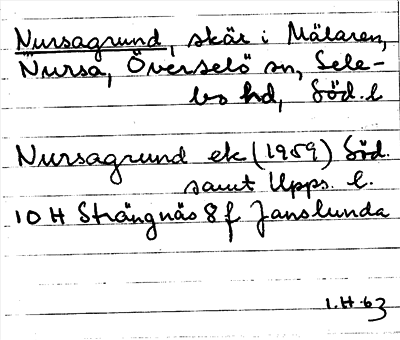 Nursagrund, skär i Mälaren,
Nursa, Överselö sn, Sele-
bo hd, Söd. l
Nursagrund ek (1959) Söd.
samt Upps. l.
10 H Strängnäs 8 f Janslunda
I.H. 63